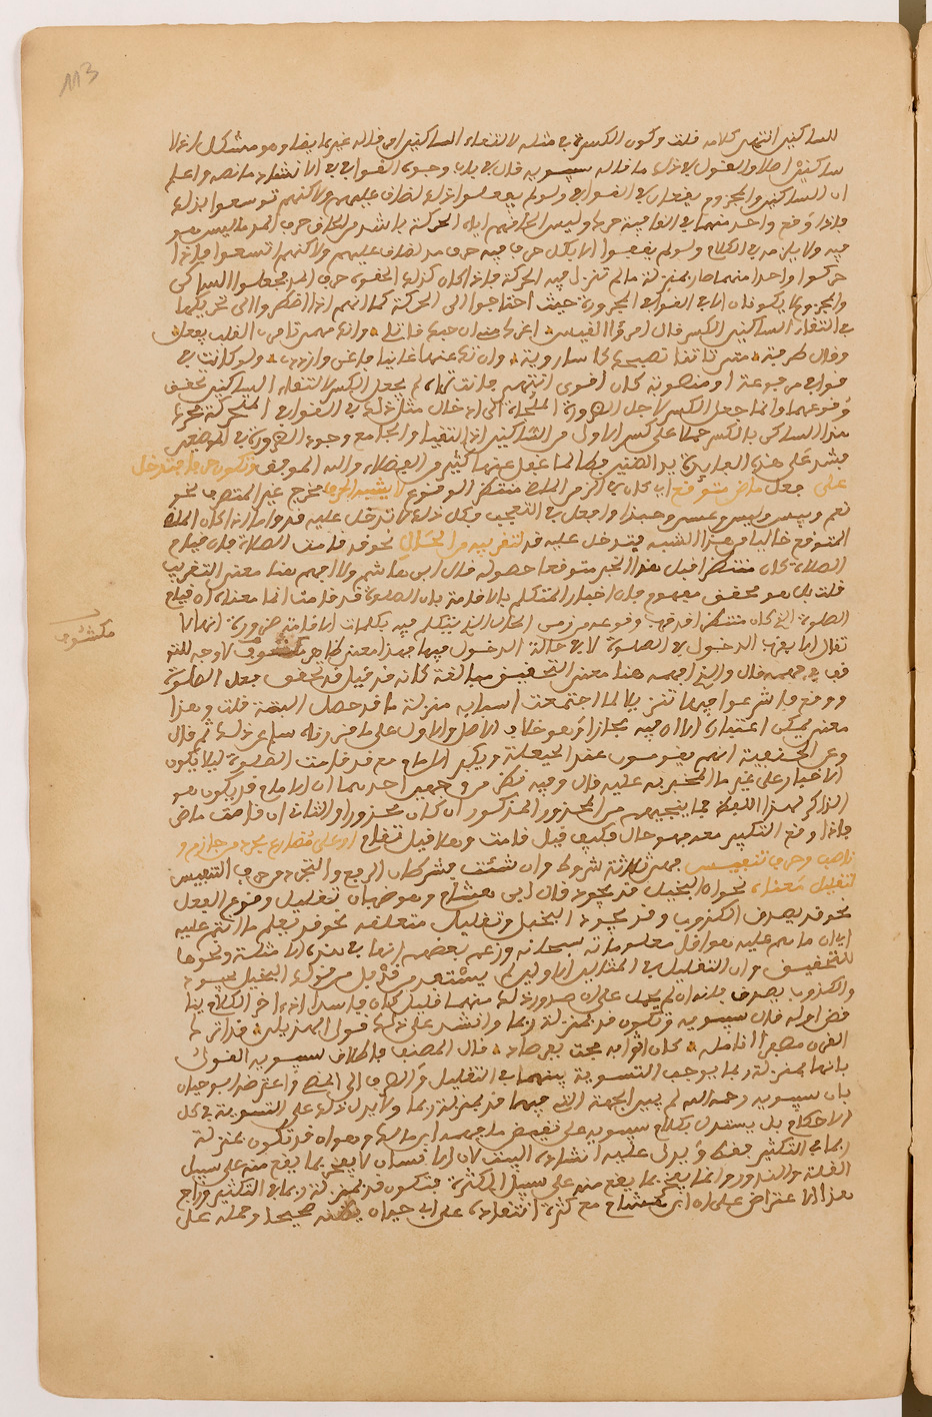 113
للساكنين انتهى كلامه قلت وكون الكسرة في مثله لالتقاء الساكنين قاله غير واحد وهو مشكل اذ لا
ساكنين اصلا والقول في ذلك ما قاله سيبويه قال في باب وجوه القوافي في الانشاد ما نصه واعلم
ان الساكن والمجزوم يقعان في القوافي ولو لم يفعلوا ذلك لضاق عليهم ولاكنهم توسعوا بذلك
فاذا وقع واحد منهما في القافية حرك وليس الحاقهم اياه الحركة باشد من الحاق حرف المد ما ليس هو
فيه ولا يلزمه في الكلام ولو لم يقفوا الا بكل حرف فيه حرف مد لضاق عليهم ولاكنهم اتسعوا فاذا
حركوا واحدا منهما صار بمنزلة ما لم تزل فيه الحركة فاذا كان كذلك الحقوه حرف المد فجعلوا الساكن
والمجزوم لا يكونان الا في القوافي المجرورة حيث احتاجوا الى الحركة كما انهم اذا اضطروا الى تحريكها
في التقاء الساكنين الكسر قال امرؤ القيس اغرك مني ان حبك قاتلي وانك مهما تامري القلب يفعل
وقال طرفة متى تاتنا نصبحك كاسا روية وان كنت عنها غانيا فاغن وازدد ولو كانت في
قواف مرفوعة او منصوبة كان اقوى انتهى
هذا الساكن بالكسر حملا على كسر الاول من الساكنين اذا التقيا والجامع وجود الضرورة في الموضعين
فشد على هذه الفايدة يد الضنين فطالما غفل عنها كثير من الفضلاء والله الموفق وتكون حرفا فتدخل
على فعل ماض متوقع اي كان في الزمن الماضي منتظر الوقوع لا يشبه الحرف مخرج غير المتصرف نحو
نعم وبيس وليس وعسى وحبذا وافعل في التعجب فكل ذلك لا تدخل عليه قد واما اذا كان الماضي
المتوقع خاليا من هذا الشبه فتدخل عليه قد لتقريبه من الحال نحو قد قامت الصلاة فان قيام
الصلاة كان منتظرا قبل هذا الخبر متوقعا حصوله قال ابن هشام ولا افهم هنا معنى التقريب
قلت بل هو محقق مفهوم فان اخبار المتكلم بالاقامة بان الصلوة قد قامت انما معناه ان قيام
الصلوة الذي كان منتظرا قد قرب وقوعه من زمن الحال الذي يتكلم فيه بكلمات الاقامة ضرورة انها انما
تقال لما يقرب الدخول في الصلوة لا في حالة الدخول فيها فهذا معنى ظاهر مكشوف لا وجه للتو
مكشوف
قف في فهمه قال والذي افهمه هنا معنى التحقيق مبالغة كانه قد قيل قد تحقق فعل الصلوة
ووقع فاشرعوا فيها تنزيلا لما اجتمعت اسبابه منزلة ما قد حصل البتة قلت وهذا
معنى يمكن اعتباره الا ان فيه مجازا وهو خلاف الاصل والاول على ما قررناه سالم عن ذلك ثم قال
وعن الحنفية انهم يقومون عند الحيعلة ويكبر الامام مع قد قامت الصلوة ليلا يكون
الاخبار على غير ما المخبر به عليه قال وفيه نظر من وجهين احدهما ان الامام قد يكون هو
الذاكر لهذا اللفظ فما ينجيهم من المحذور المذكور ان كان محذورا والثاني ان قامت ماض
فاذا وقع التكبير معه فهو حال فكيف قيل قامت وهلا قيل تقام او على مضارع مجرد من جازم و
ناصب وحرف تنفيس فهذه ثلاثة شروط وان شئت فشرطان الرفع والتجرد من حرف التنفيس
لتقليل معناه نحو ان البخيل قد يجود قال ابن هشام وهو ضربان تقليل وقوع الفعل
نحو قد يصدق الكذوب وقد يجود البخيل وتقليل متعلقه نحو قد يعلم ما انتم عليه
اي ان ما هم عليه هو اقل معلوماته سبحانه وزعم بعضهم انها في هذه الامثلة ونحوها
للتحقيق وان التقليل في المثالين الاولين لم يستفد من قد بل من قولك البخيل يجود
والكذوب يصدق فانه ان لم يحمل على ان صدور ذلك منهما قليل كان فاسدا اذ اخر الكلام ينا
قض اوله قال سيبويه وتكون قد بمنزلة ربما وانشد على ذلك قول الهذلي قد اترك
القرن مصفرا انامله كان اثوابه مجت بفرصاد قال المصنف واطلاق سيبويه القول
بانها بمنزلة ربما يوجب التسوية بينهما في التقليل والصرف الى المضي واعترضه ابو حيان
بان سيبويه رحمه الله لم يبين الجهة التي فيها قد بمنزلة ربما ولا يدل ذلك على التسوية في كل
الاحكام بل يستدل بكلام سيبويه على نقيض ما فهمه ابن مالك وهو ان قد تكون بمنزلة
ربما في التكثير فقط ويدل عليه انشاده البيت لان الانسان لا يفخر بما يقع منه على سبيل
القلة والندور وانما يفخر بما يقع منه على سبيل الكثرة فتكون قد بمنزلة ربما في التكثير وراج
هذا الاعتراض على ابن هشام مع كثرة انتقاده على ابي حيان صحيحا وحمله على